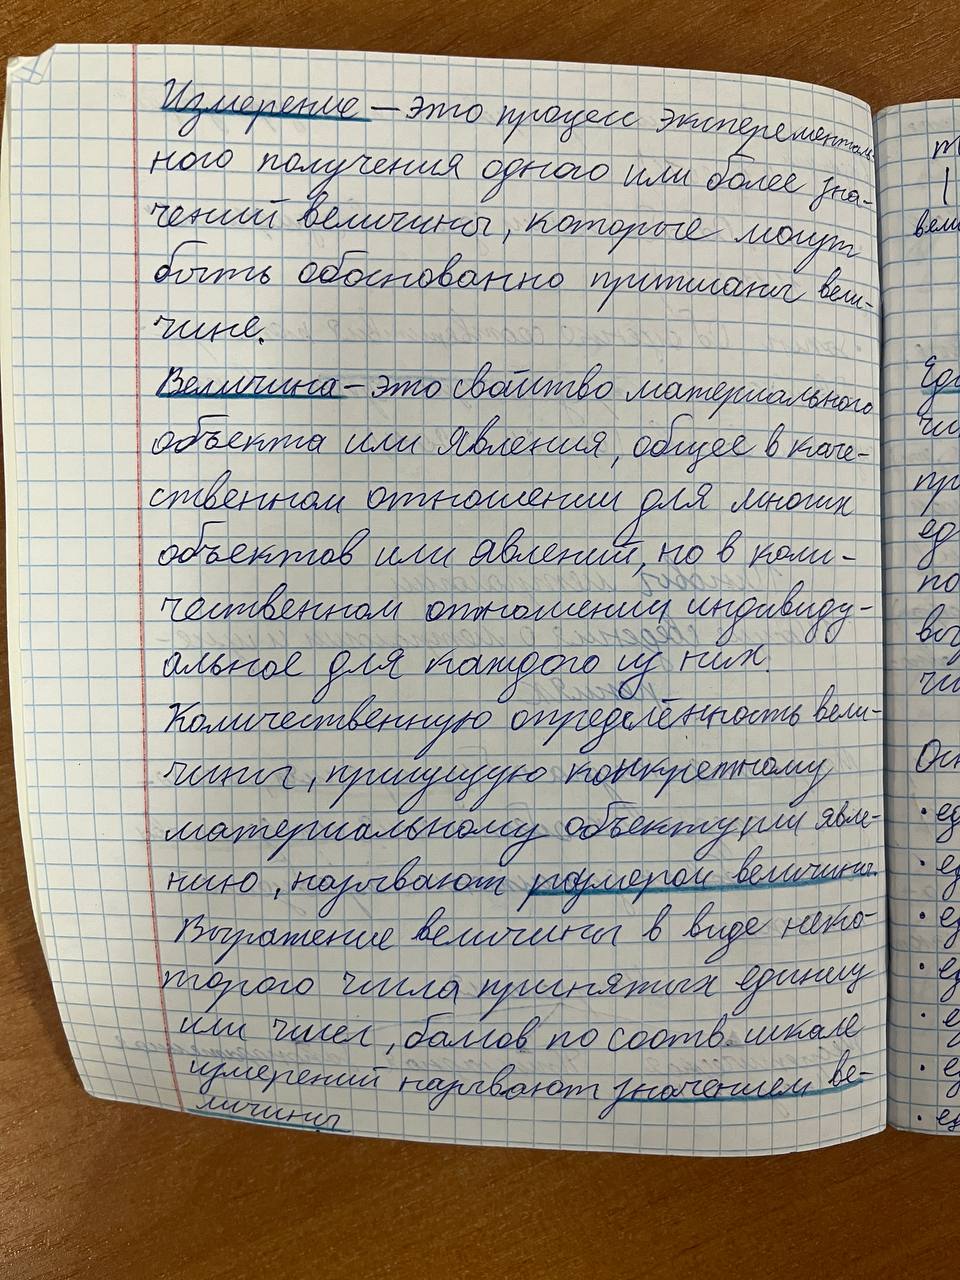 Измерение – это процесс эксперементаль-
ного получения одного или более зна-
чений величины, которые могут
быть обоснованно приписаны вели-
чине.
Величина – это свойство материального
объекта или явления, общее в каче-
ственном отношении для многих
объектов или явлений, но в коли-
чественном отношении индивиду-
альное для каждого из них.
Количественную определённость вели-
чины, присущую конкретному
материальному объекту или явле-
нию, называют размером величины.
Выражение величины в виде неко-
торого числа принятых единиц
или чисел, баллов по соотв. шкале
измерений называют значением ве-
личины